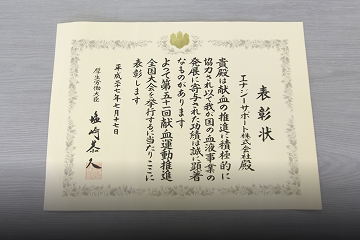 表彰状
エナジーサポート株式会社殿
貴殿は献血の推進に積極的に
協力され以て我が国の血液事業の
発展に寄与された功績は誠に顕著
なものがあります
よって第五十一回献血運動推進
全国大会を挙行するに当たりここに
表彰します
平成二十七年七月十七日
厚生労働大臣
塩崎恭久